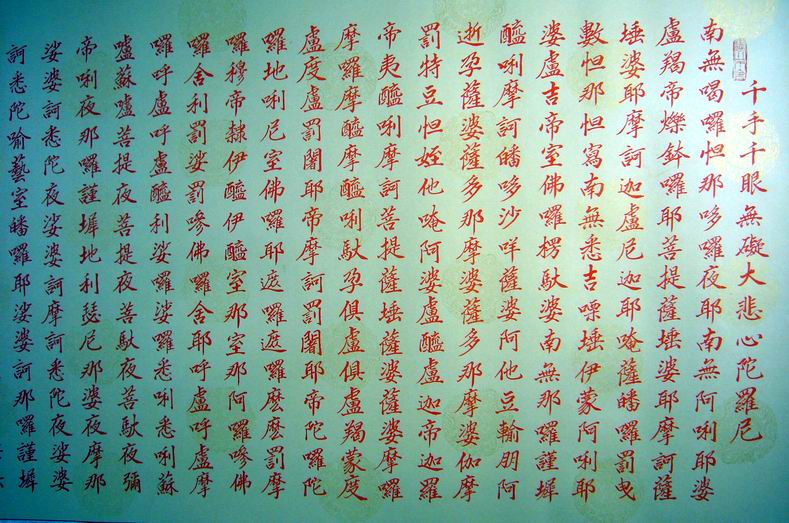 千手千眼無礙大悲心陀羅尼
南無喝囉怛那哆囉夜耶南無阿唎耶婆
盧羯帝爍鉢囉耶菩提薩埵婆耶摩訶薩
埵婆耶摩訶迦盧尼迦耶唵薩皤囉罰曳
數怛那怛寫南無悉吉嘌埵伊蒙阿唎耶
婆盧吉帝室佛囉楞馱婆南無那囉謹墀
醯唎摩訶皤哆沙咩薩婆阿他豆輸朋阿
逝孕薩婆薩多那摩婆薩多那摩婆伽摩
罰特豆怛姪他唵阿婆盧醯盧迦帝迦羅
帝夷醯唎摩訶菩提薩埵薩婆薩婆摩囉
摩羅摩醯摩醯唎馱孕俱盧俱盧羯蒙度
盧度盧罰闍耶帝摩訶罰闍耶帝陀囉陀
囉地唎尼室佛囉耶遮囉遮囉麽麽罰摩
囉穆帝隸伊醯伊醯室那室那阿囉嘇佛
囉舍利罰娑罰嘇佛囉舍耶呼盧呼盧摩
囉呼盧呼盧醯利娑囉娑囉悉唎悉唎蘇
嚧蘇嚧菩提夜菩提夜菩馱夜菩馱夜彌
帝唎夜那囉謹墀地利瑟尼那婆夜摩那
娑婆訶悉陀夜娑婆訶摩訶悉陀夜娑婆
訶悉陀喻藝室皤囉耶娑婆訶那囉謹墀